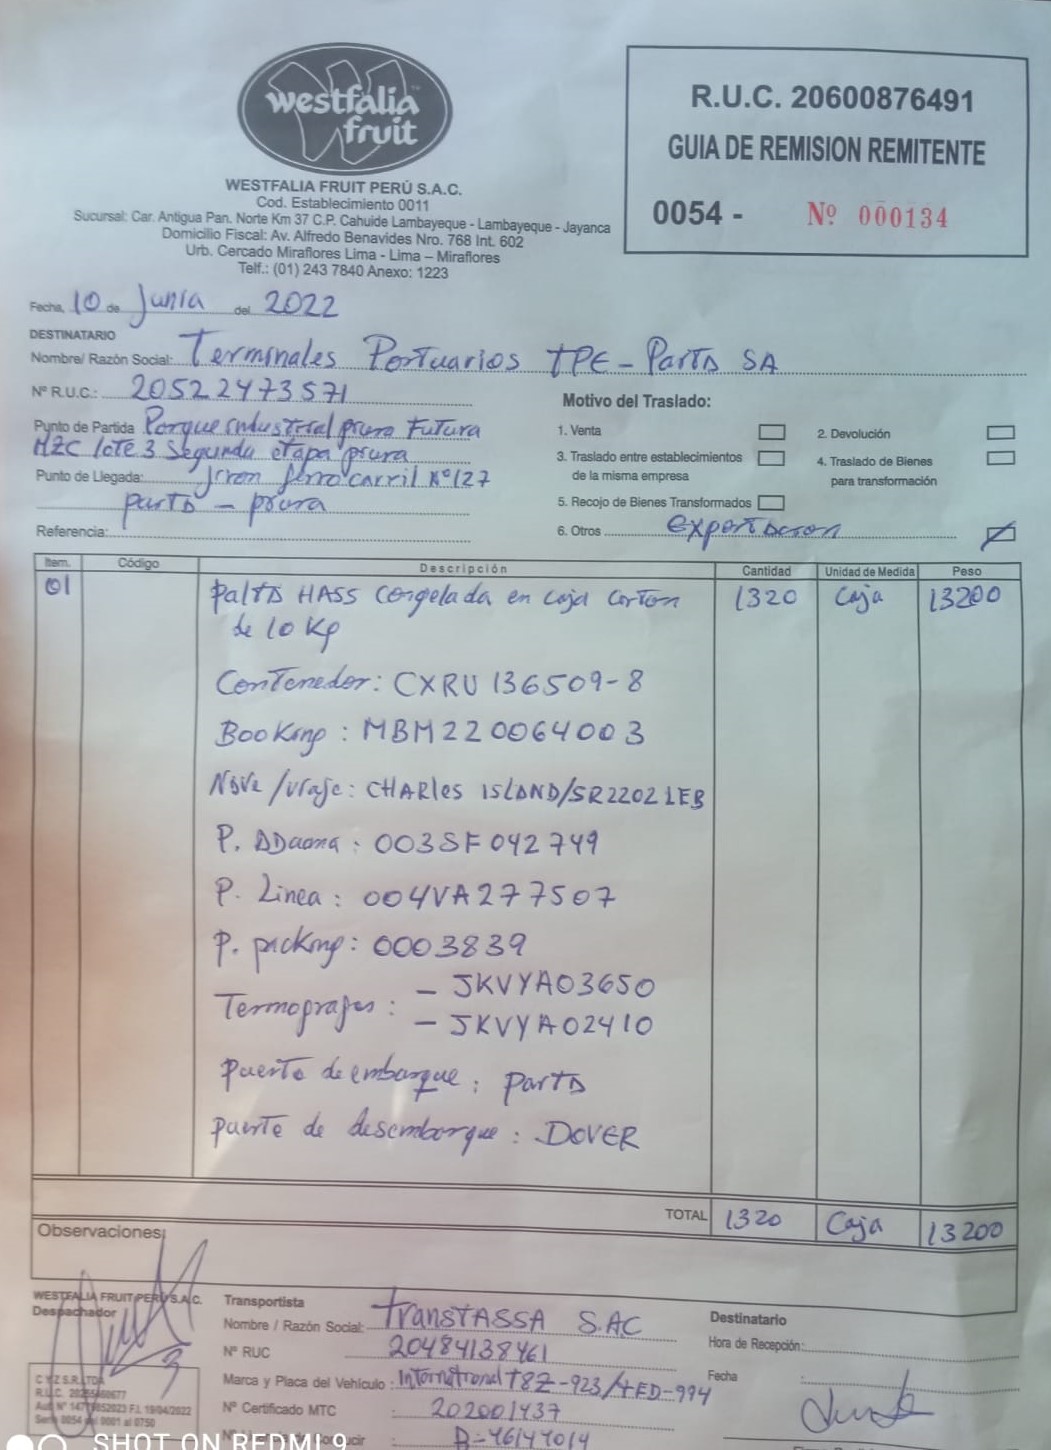 westfalia
fruit
WESTFALIA FRUIT PERÚ S.A.C.
Cod. Establecimiento 0011
Sucursal: Car. Antigua Pan. Norte Km 37 C.P. Cahuide Lambayeque - Lambayeque - Jayanca
Domicilio Fiscal: Av. Alfredo Benavides Nro. 768 Int. 602
Urb. Cercado Miraflores Lima - Lima – Miraflores
Telf.: (01) 243 7840 Anexo: 1223
R.U.C. 20600876491
GUIA DE REMISION REMITENTE
0054 - Nº 000134
Fecha, 10 de Junia del 2022
DESTINATARIO
Nombre/ Razón Social: Terminales Portuarios TPE - Parta SA
Nº R.U.C.: 20522473571
Punto de Partida Parque industrial piura Futura
MZC lote 3 Segunda etapa piura
Punto de Llegada: Jiron ferrocarril Nº127
parta - piura
Referencia:
Motivo del Traslado:
1. Venta
2. Devolución
3. Traslado entre establecimientos
de la misma empresa
4. Traslado de Bienes
para transformación
5. Recojo de Bienes Transformados
6. Otros Exportacion
Item. Código Descripción Cantidad Unidad de Medida Peso
01 palta HASS congelada en caja carton 1320 Caja 13200
de 10 Kg
Contenedor: CXRU 136509-8
Booking: MBM220064003
Nave/viaje: CHARles ISLAND/SR22021EB
P. ADuana: 003SF042749
P. Linea: 004VA277507
P. packing: 0003839
Termografos: - JKVYA03650
- JKVYA02410
puerto de embarque: parta
puerto de desembarque: DOVER
TOTAL 1320 Caja 13200
Observaciones:
WESTFALIA FRUIT PERÚ S.A.C.
Despachador
C Y Z S.R.LTDA
Aut. Nº F.I. 19/04/2022
Serie 0054 del 0001 al 0750
Transportista
Nombre / Razón Social: TransTASSA S.AC
Nº RUC 20484138461
Marca y Placa del Vehículo: International T8Z-923/TED-994
Nº Certificado MTC : 202001437
Conducir : B-46144014
Destinatario
Hora de Recepción:
Fecha :
SHOT ON REDMI 9